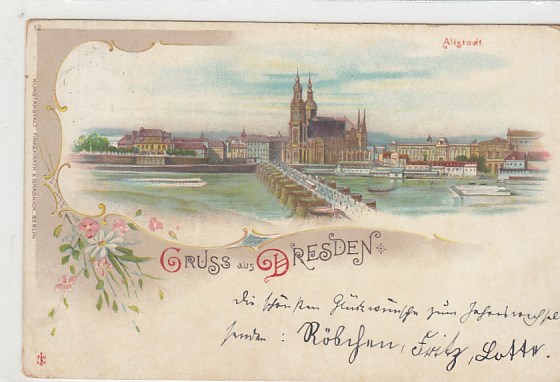 Altstadt
KUNSTANSTALT FINKENRATH & GRASNICK, BERLIN
GRUSS aus DRESDEN
Die schönsten Glückwünsche zum Jahreswechsel
senden: Röschen, Fritz, Lotte.